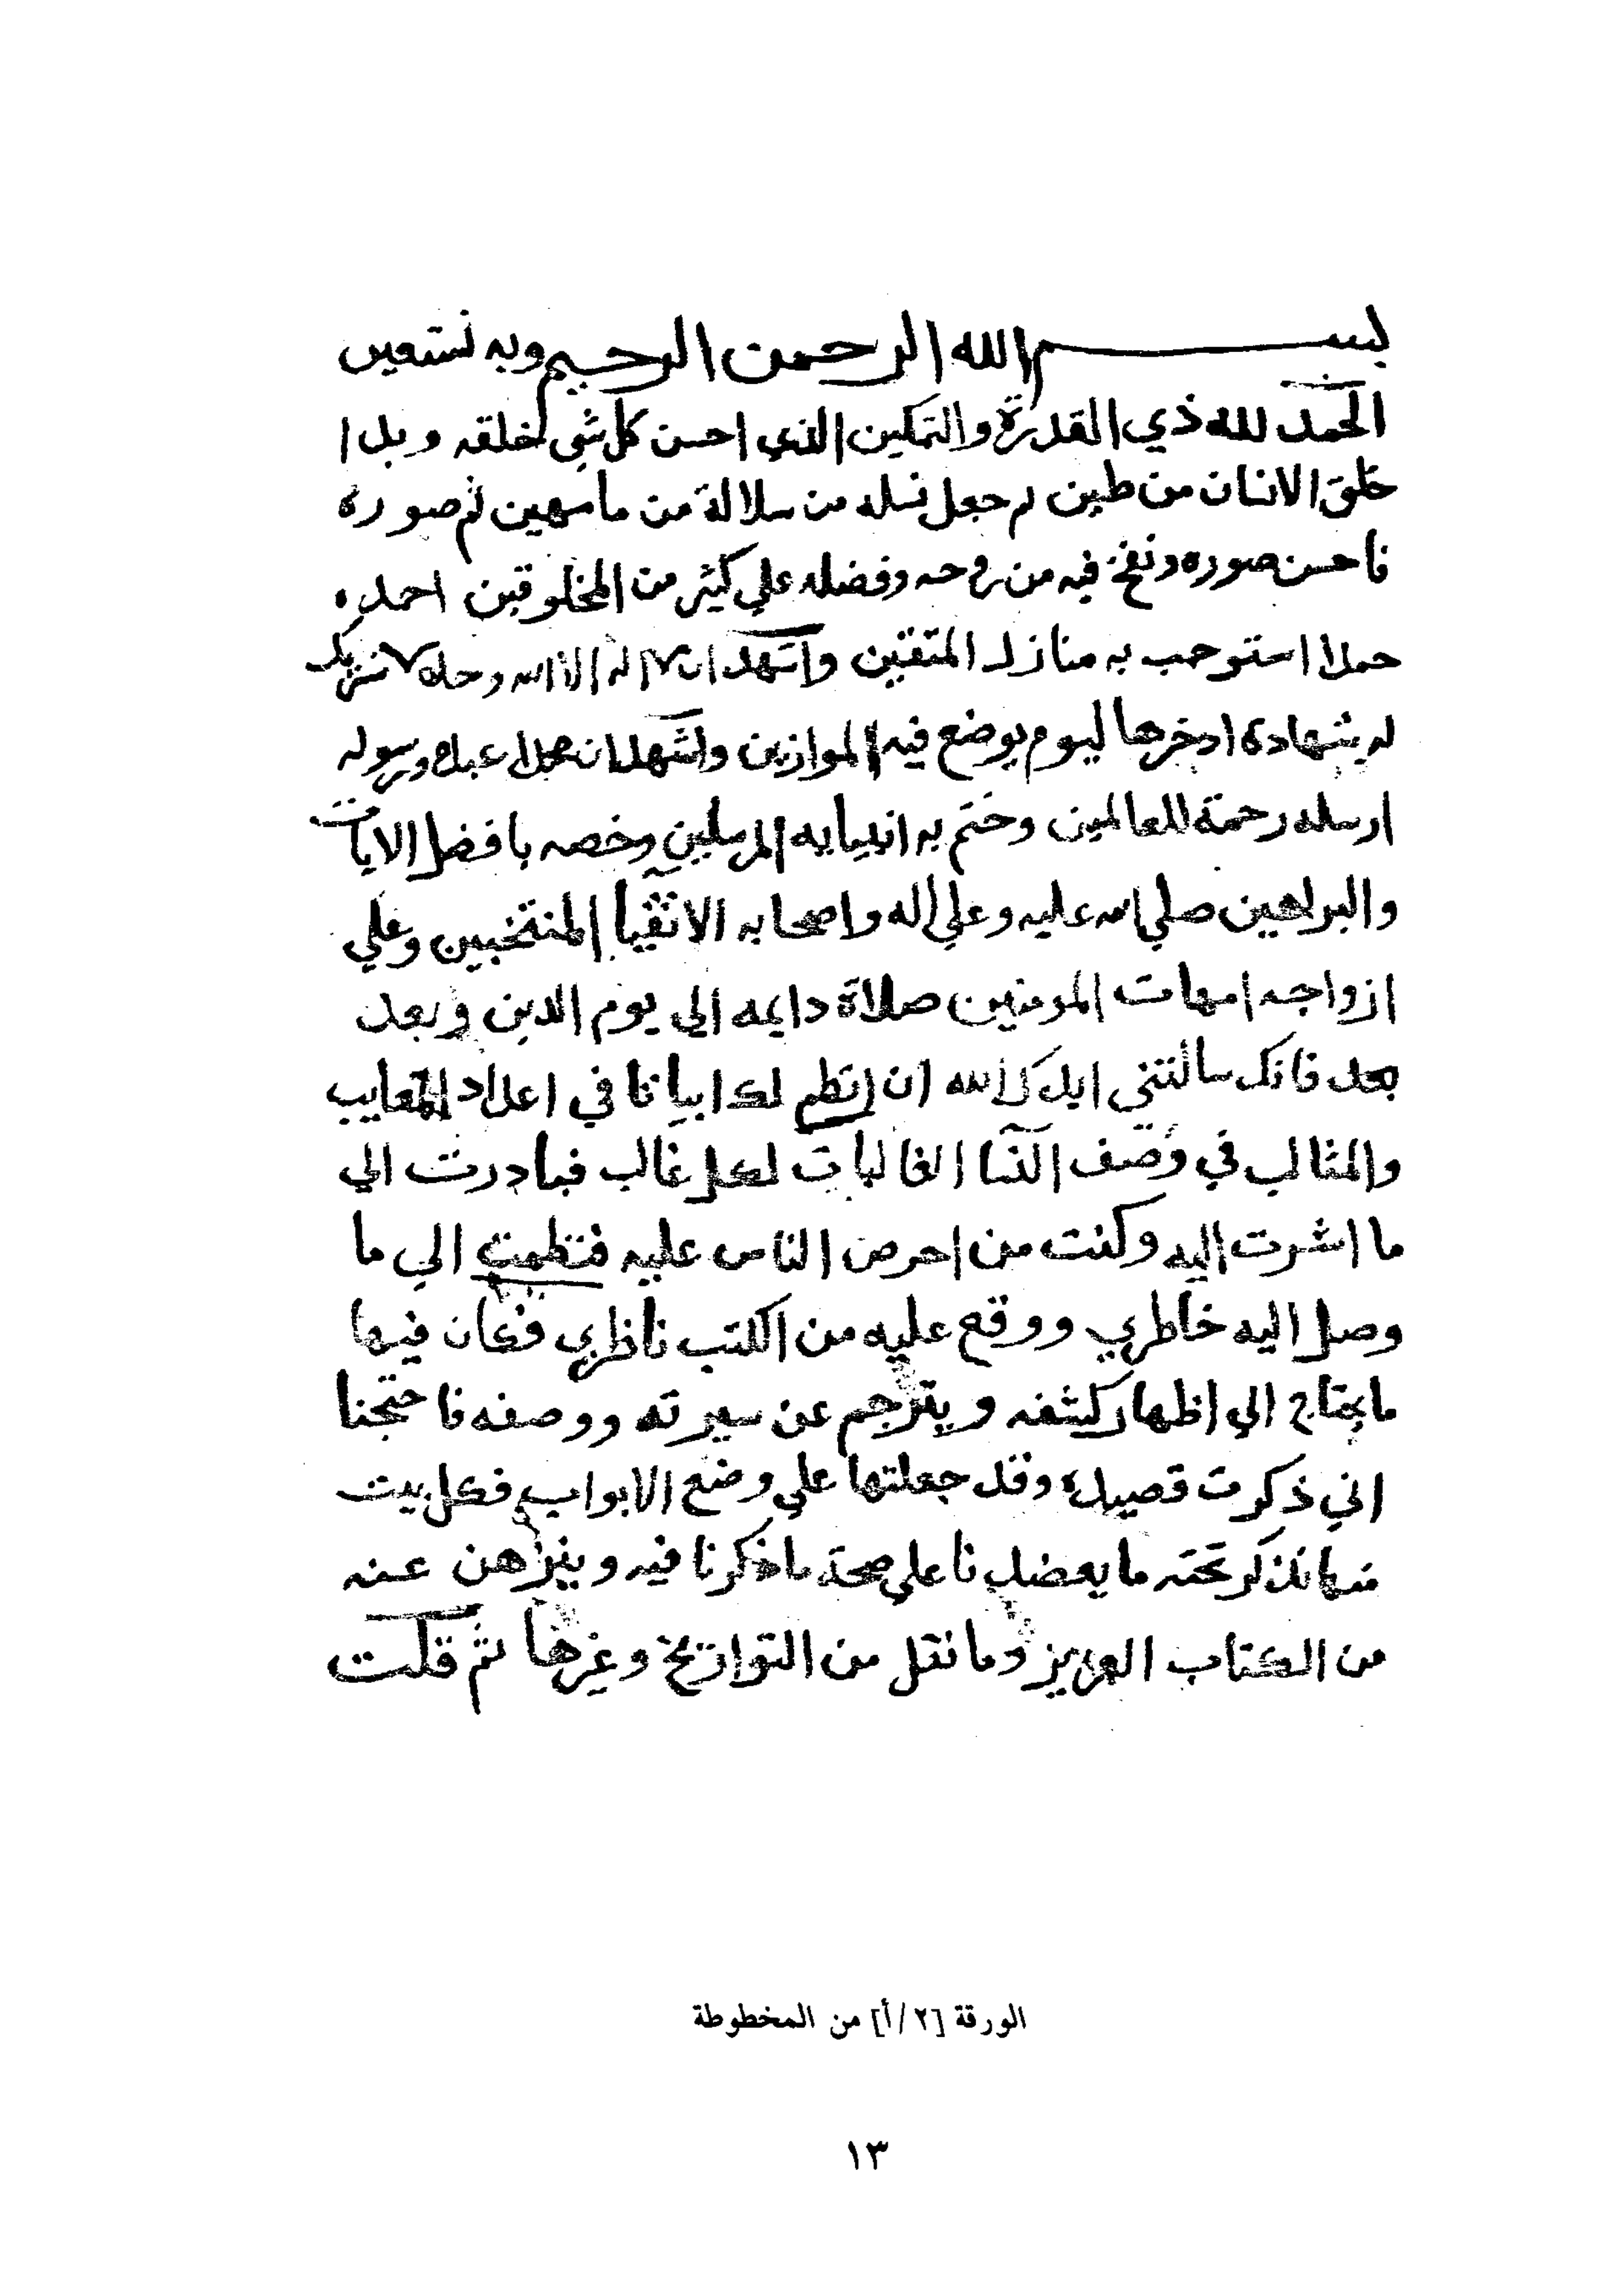 بسم الله الرحمن الرحيم وبه نستعين
الحمد لله ذي القدرة والتمكين الذي احسن كل شي خلقه وبدا
خلق الانسان من طين ثم جعل نسله من سلالة من ما مهين ثم صوره
فاحسن صوره ونفخ فيه من روحه وفضله علي كثير من المخلوقين احمده
حمدا استوجب به منازل المتقين واشهد ان لا اله الا الله وحده لا شريك
له شهادة ادخرها ليوم يوضع فيه الموازين واشهد ان محمدا عبده ورسوله
ارسله رحمة للعالمين وختم به انبيايه المرسلين وخصه بافضل الايات
والبراهين صلي الله عليه وعلي اله واصحابه الاتقيا المنتخبين وعلي
ازواجه امهات المومنين صلاة دايمه الي يوم الدين وبعد
بعد فانك سالتني ايدك الله ان انظم لك ابياتا في اعداد المعايب
والمثالب في وصف النسا الغالبات لكل غالب فبادرت الي
ما اشرت اليه وكنت من احرص الناس عليه فنظمت الي ما
وصل اليه خاطري ووقع عليه من الكتب ناظري فكان فيها
ما يحتاج الي اظهار كشفه ويترجم عن سيرته ووصفه فاحتجنا
اني ذكرت قصيدة وقد جعلتها علي وضع الابواب فكل بيت
منها نذكر تحته ما يعضدنا علي صحة ما ذكرنا فيه ويبرهن عنه
من الكتاب العزيز وما نقل من التواريخ وغيرها ثم قلت
الورقة [٢/أ] من المخطوطة
١٣